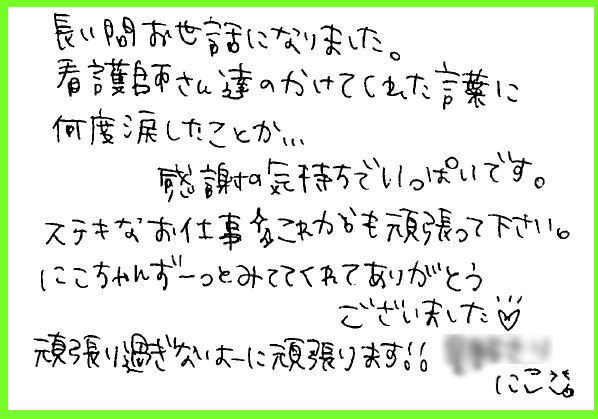 長い間お世話になりました。
看護師さん達のかけてくれた言葉に
何度涙したことか...
感謝の気持ちでいっぱいです。
ステキなお仕事☆これからも頑張って下さい。
にこちゃんずーっとみててくれてありがとう
ございました♡
頑張り過ぎないよーに頑張ります!!
にこ